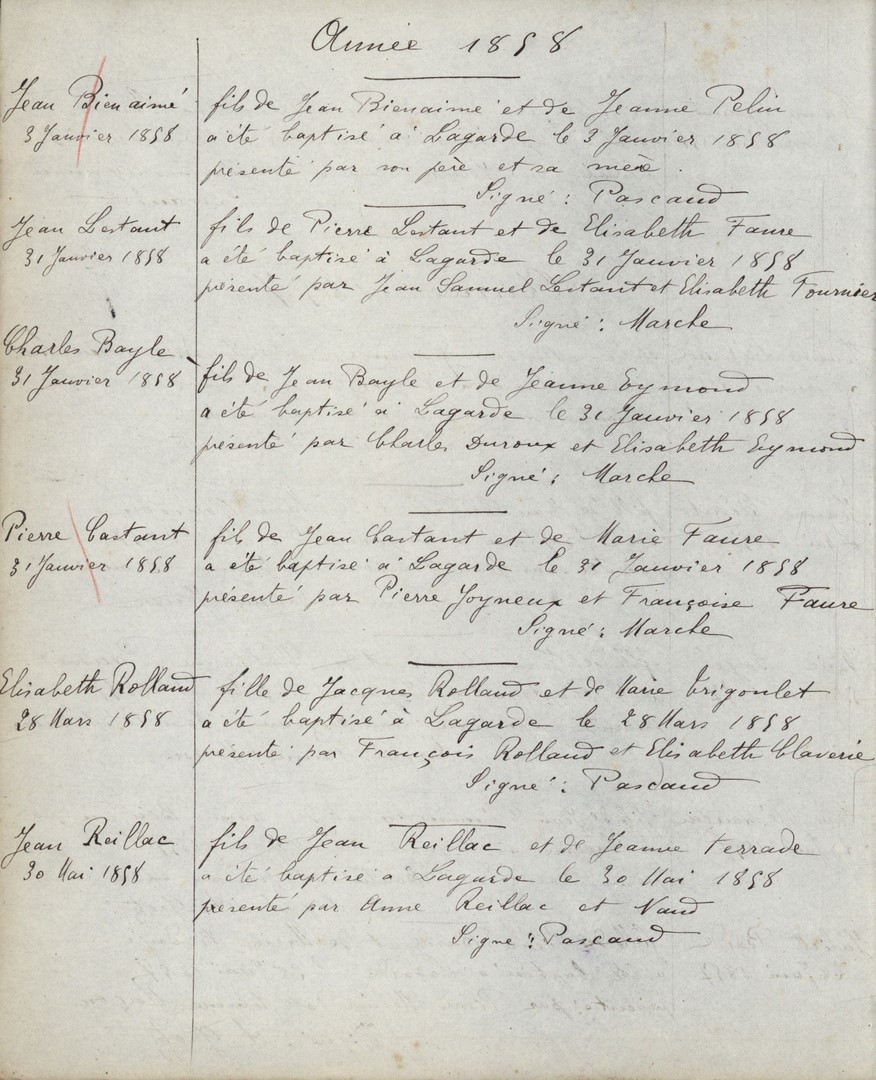 Année 1858
Jean Bienaimé
3 Janvier 1858
fils de Jean Bienaimé et de Jeanne Pelin
a été baptisé à Lagarde le 3 Janvier 1858
présenté par son père et sa mère.
Signé : Pascaud
Jean Lestant
31 Janvier 1858
fils de Pierre Lestant et de Elisabeth Faure
a été baptisé à Lagarde le 31 Janvier 1858
présenté par Jean Samuel Lestant et Elisabeth Fournier
Signé : Marche
Charles Bayle
31 Janvier 1858
fils de Jean Bayle et de Jeanne Eymond
a été baptisé à Lagarde le 31 Janvier 1858
présenté par Charles Duroux et Elisabeth Eymond
Signé : Marche
Pierre Castant
31 Janvier 1858
fils de Jean Castant et de Marie Faure
a été baptisé à Lagarde le 31 Janvier 1858
présenté par Pierre Joyneux et Françoise Faure
Signé : Marche
Elisabeth Rolland
28 Mars 1858
fille de Jacques Rolland et de Marie Trigoulet
a été baptisé à Lagarde le 28 Mars 1858
présenté par François Rolland et Elisabeth Claverie
Signé : Pascaud
Jean Reillac
30 Mai 1858
fils de Jean Reillac et de Jeanne Terrade
a été baptisé à Lagarde le 30 Mai 1858
présenté par Anne Reillac et Naud
Signé : Pascaud